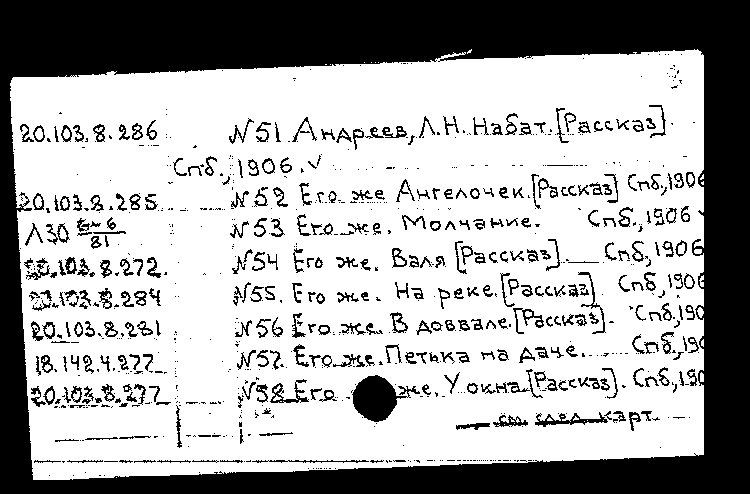 20.103.8.286 №51 Андреев, Л.Н. Набат. [Рассказ]
Спб., 1906.
20.103.8.285 №52 Его же Ангелочек. [Рассказ] Спб, 1906
Л30 81 №53 Его же. Молчание. Спб., 1906
20.103.8.272. №54 Его же. Валя [Рассказ] Спб, 1906
20.103.8.284 №55. Его же. На реке. [Рассказ] Спб, 1906
20.103.8.281 №56 Его же. В подвале. [Рассказ]. Спб, 190
18.142.4.277 №57. Его же. Петька на даче. Спб., 190
20.103.8.277 №58 Его же. У окна. [Рассказ]. Спб, 190
см. след. карт.